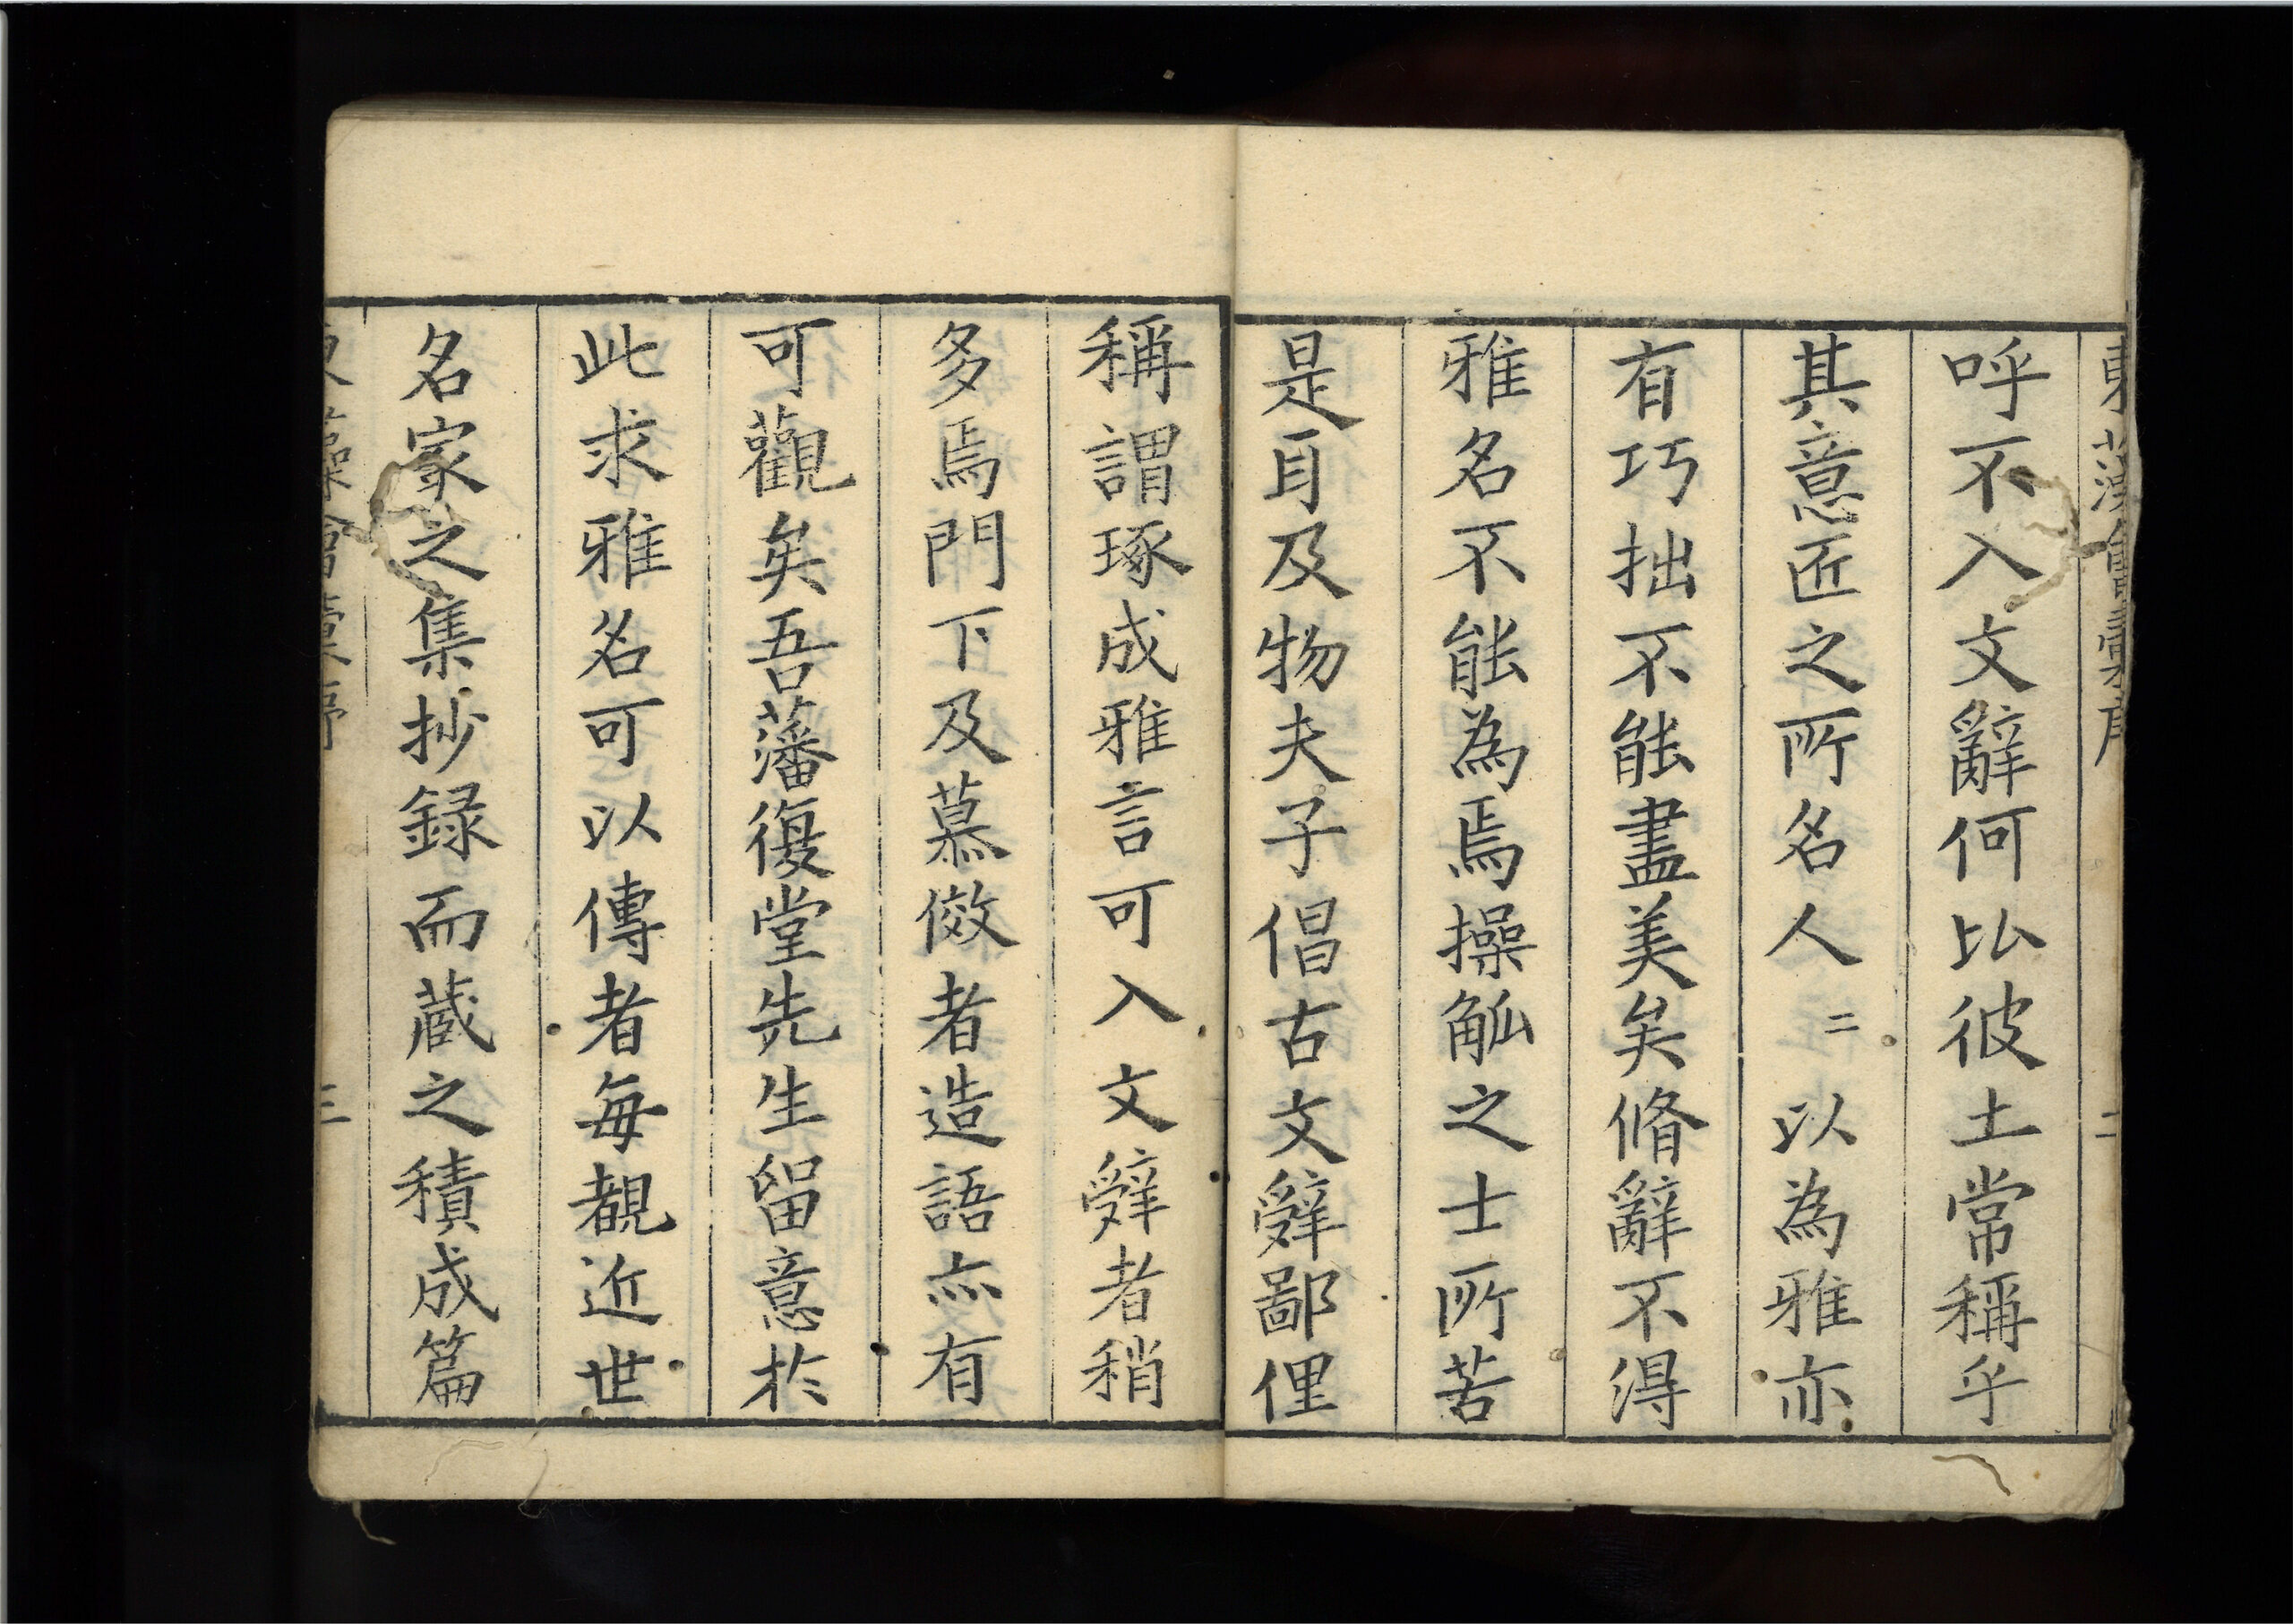 呼不入文辭何比彼土常稱乎
其意匠之所名人二以為雅亦
有巧拙不能盡美矣脩辭不得
雅名不能為焉操觚之士所苦
是耳及物夫子倡古文辭鄙俚
稱謂琢成雅言可入文辭者稍
多焉門下及慕傚者造語亦有
可觀矣吾藩復堂先生留意於
此求雅名可以傳者每覩近世
名家之集抄録而蔵之積成篇
三